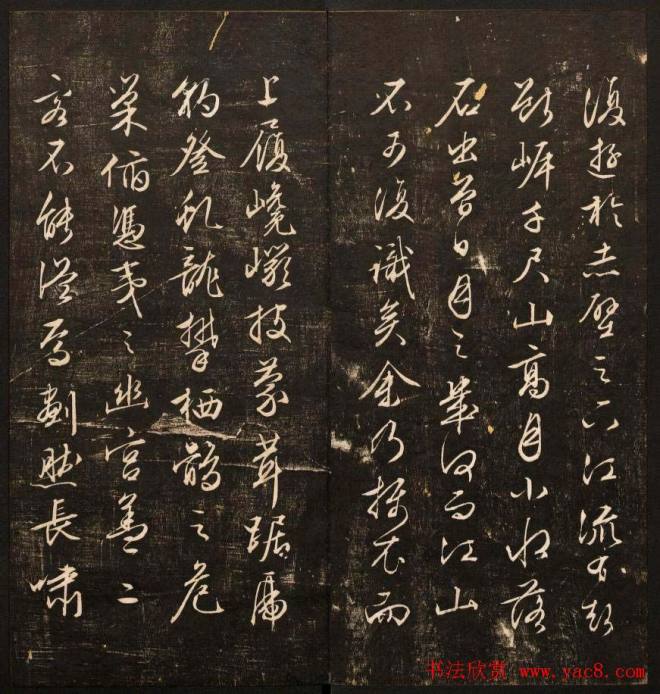 復遊於赤壁之下江流有聲
斷岸千尺山高月小水落
石出曾日月之幾何而江山
不可復識矣余乃攝衣而
上履巉巖披蒙茸踞虎
豹登虬龍攀栖鶻之危
巢俯馮夷之幽宮蓋二
客不能從焉劃然長嘯
书法欣赏 www.yac8.com